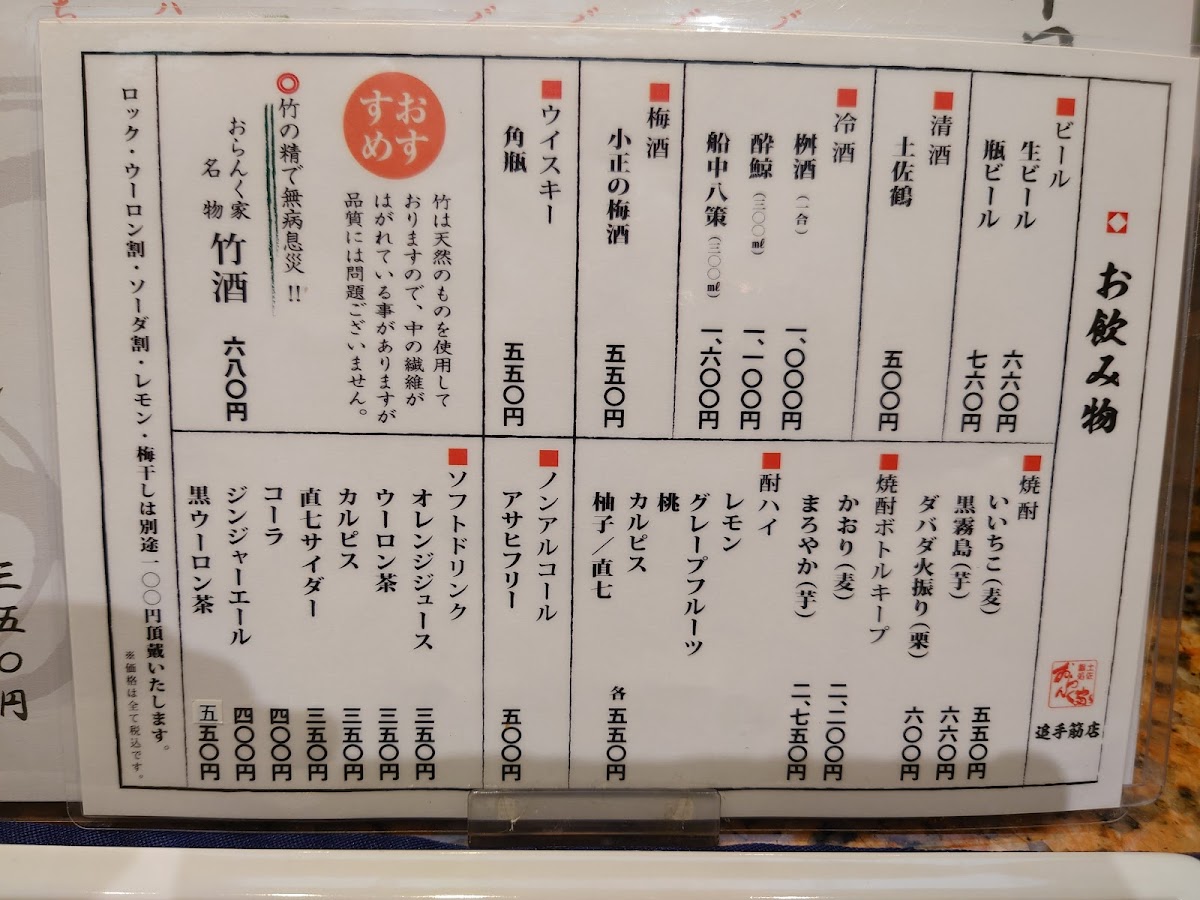 お飲み物
土佐
おらんく家
追手筋店
■ビール
生ビール 六六〇円
瓶ビール 七六〇円
■清酒
土佐鶴 五〇〇円
■冷酒
桝酒(一合) 一、〇〇〇円
酔鯨(三〇〇㎖) 一、一〇〇円
船中八策(三〇〇㎖) 一、六〇〇円
■梅酒
小正の梅酒 五五〇円
■ウイスキー
角瓶 五五〇円
おすすめ
竹は天然のものを使用して
おりますので、中の繊維が
はがれている事がありますが
品質には問題ございません。
◎竹の精で無病息災!!
おらんく家
名物
竹酒 六八〇円
■焼酎
いいちこ(麦) 五五〇円
黒霧島(芋) 六六〇円
ダバダ火振り(栗) 六〇〇円
■焼酎ボトルキープ
かおり(麦) 二、二〇〇円
まろやか(芋) 二、七五〇円
■酎ハイ
レモン
グレープフルーツ
桃
カルピス
柚子/直七 各 五五〇円
■ノンアルコール
アサヒフリー 五〇〇円
■ソフトドリンク
オレンジジュース 三五〇円
ウーロン茶 三五〇円
カルピス 三五〇円
直七サイダー 三五〇円
コーラ 四〇〇円
ジンジャーエール 四〇〇円
黒ウーロン茶 五五〇円
ロック・ウーロン割・ソーダ割・レモン・梅干しは別途一〇〇円頂戴いたします。
※価格は全て税込です。
三五〇円